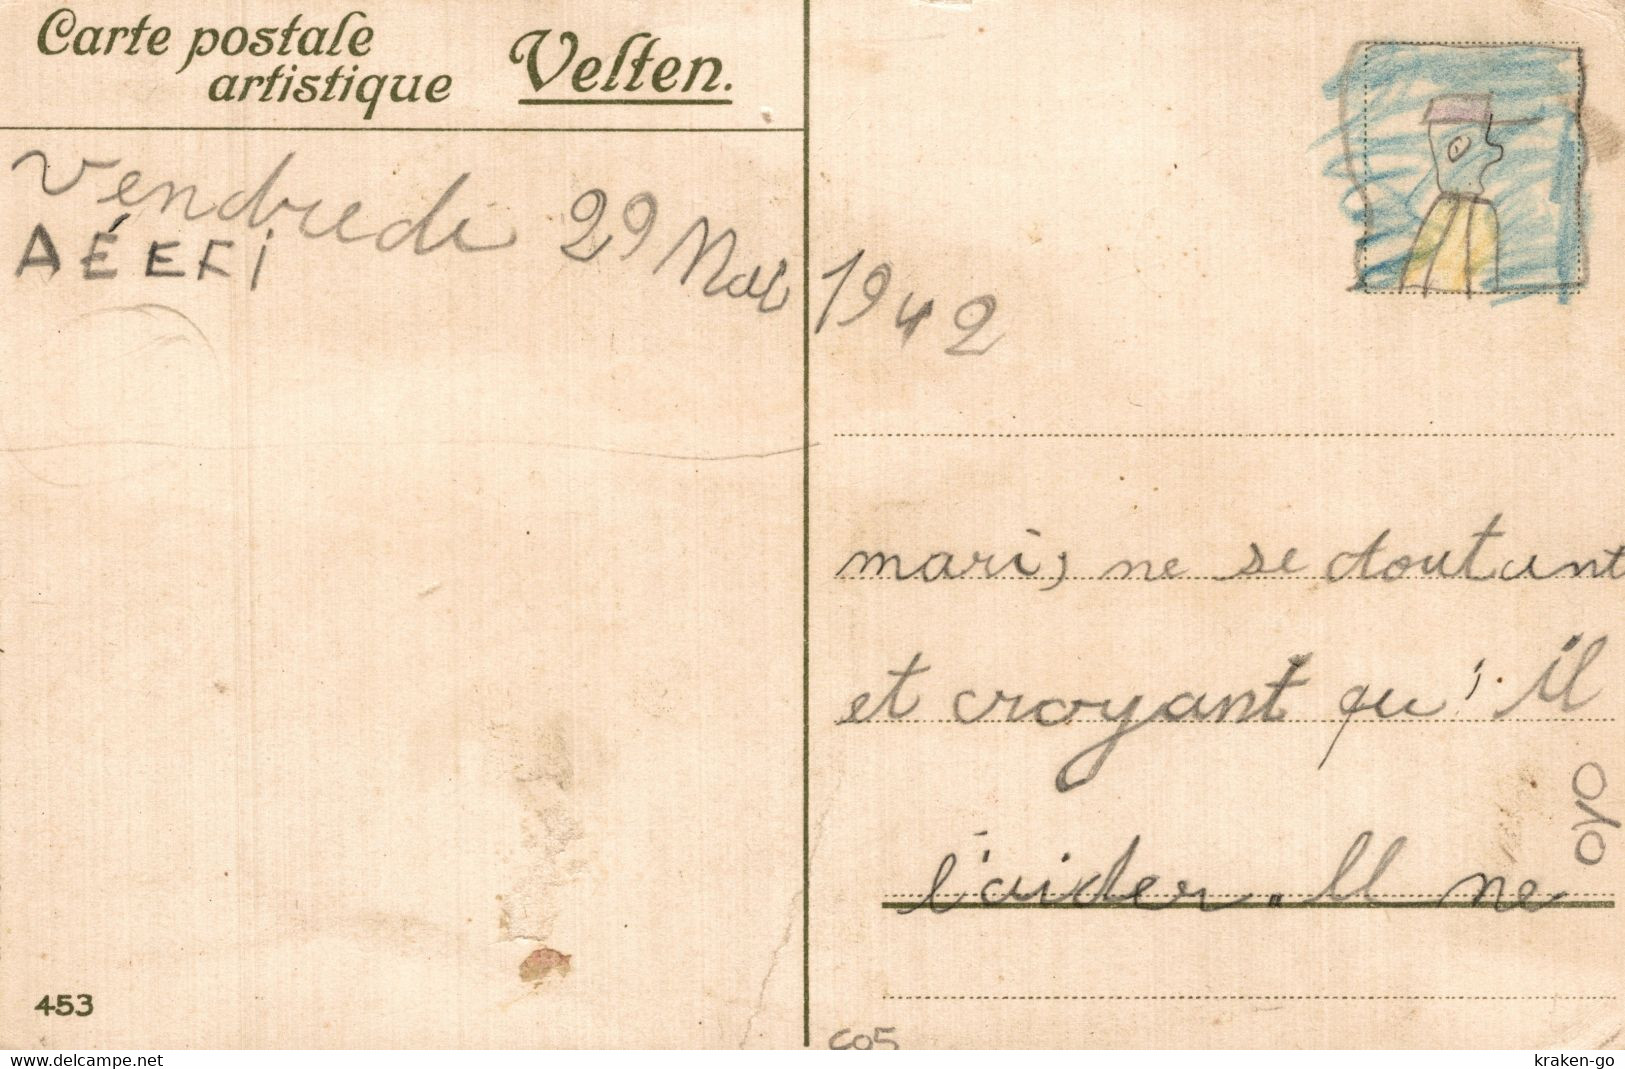 Carte postale
artistique
Velten.
Vendredi 29 Mai 1942
A É E F i
mari, ne se doutant
et croyant qu'il
l'aider. Il ne
453
www.delcampe.net
kraken-go